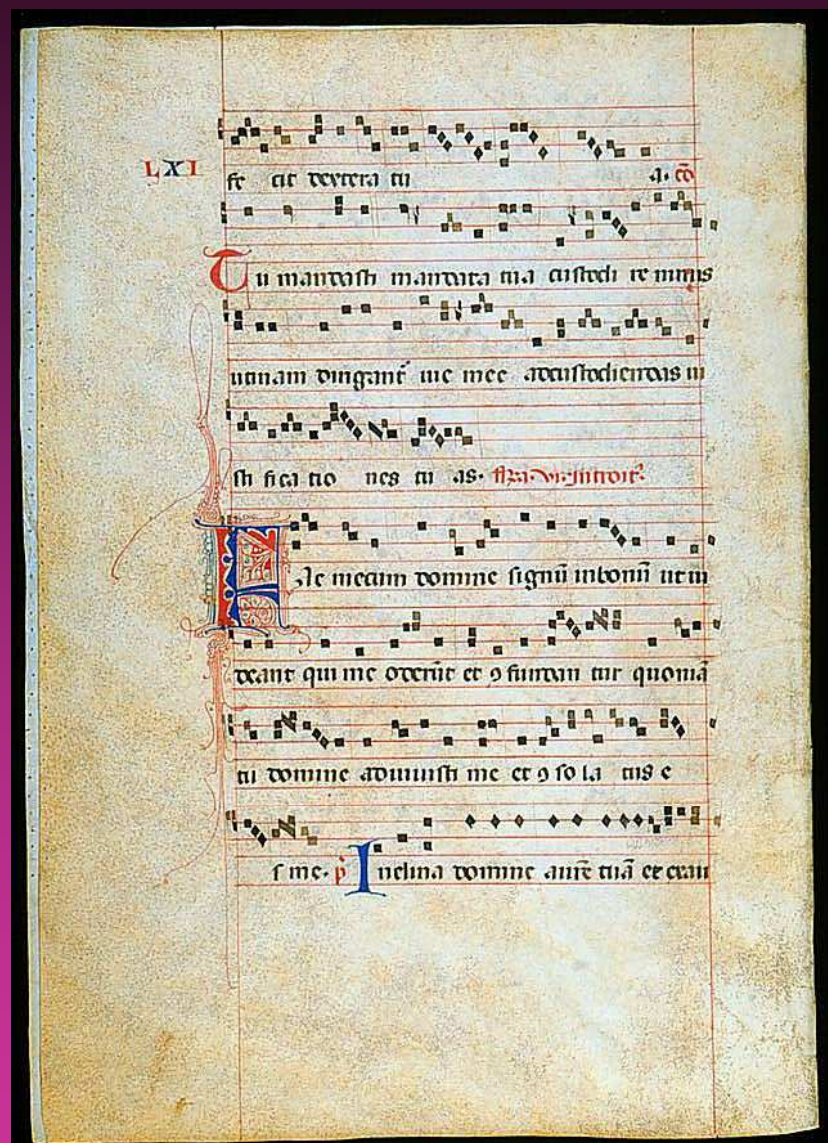 LXI
fe cit dextera tu a. cō
Tu mandasti mandata tua custodi re nimis
utinam dirigant᷑ uie mee adcustodiendas iu
sti fica tio nes tu as. introit᷑
Fac mecum domine signū inbonū ut ui
deant qui me oderūt et ꝯfundan tur quoniā
tu domine adiuuisti me et ꝯ so la tus e
s me. p̄ Inclina domine aurē tuā et exau